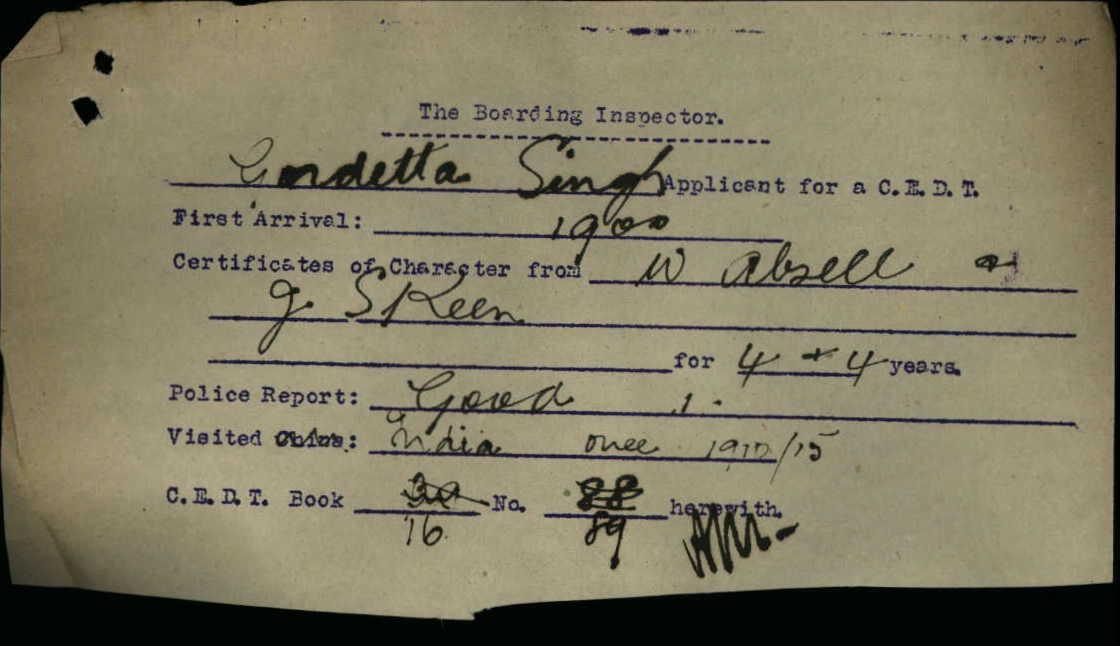 The Boarding Inspector.
Gordetta Singh Applicant for a C.E.D.T.
First Arrival: 1900
Certificates of Character from W Absell &
J. Skeen
for 4 + 4 years.
Police Report: Good
Visited China: India once 1910/15
C.E.D.T. Book 30 No. 88 herewith.
16 89